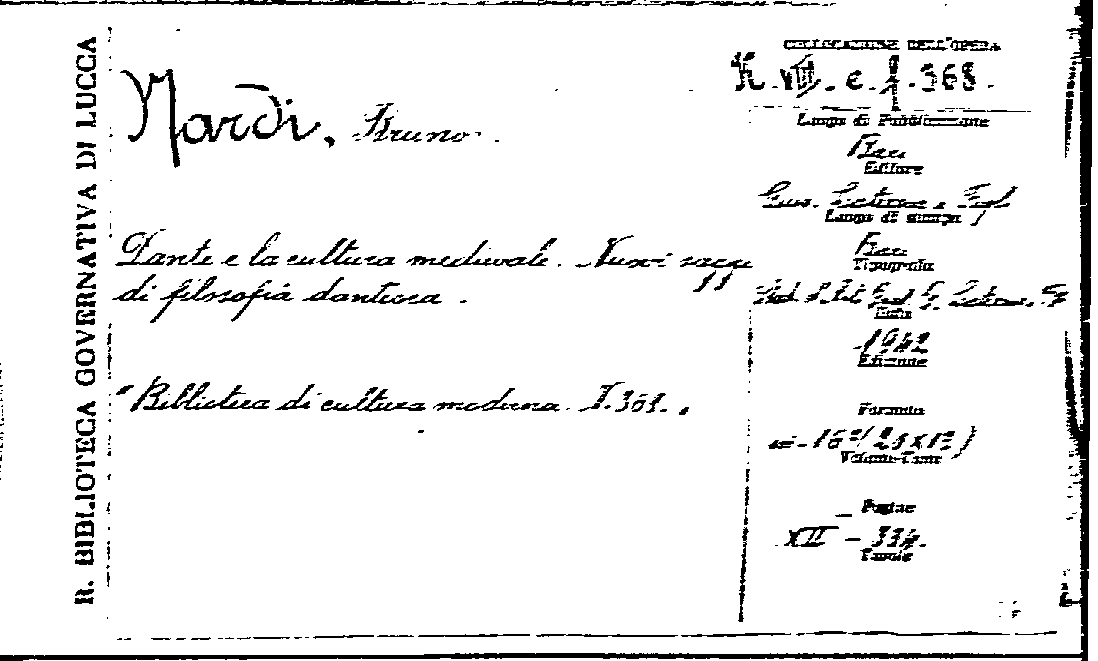 R. BIBLIOTECA GOVERNATIVA DI LUCCA
Nardi, Bruno.
Dante e la cultura medievale. Nuovi saggi
di filosofia dantesca.
"Biblioteca di cultura moderna. N. 368."
COLLOCAZIONE DELL'OPERA
K. VIII. e. 1. 368.
Luogo di Pubblicazione
Bari
Editore
Gius. Laterza e Figli
Luogo di stampa
Bari
Tipografia
Laterza
Data
1942
Edizione
Formato
in-16º (21x13)
Volume-Tomo
Pagine
XII - 334.
Tavole